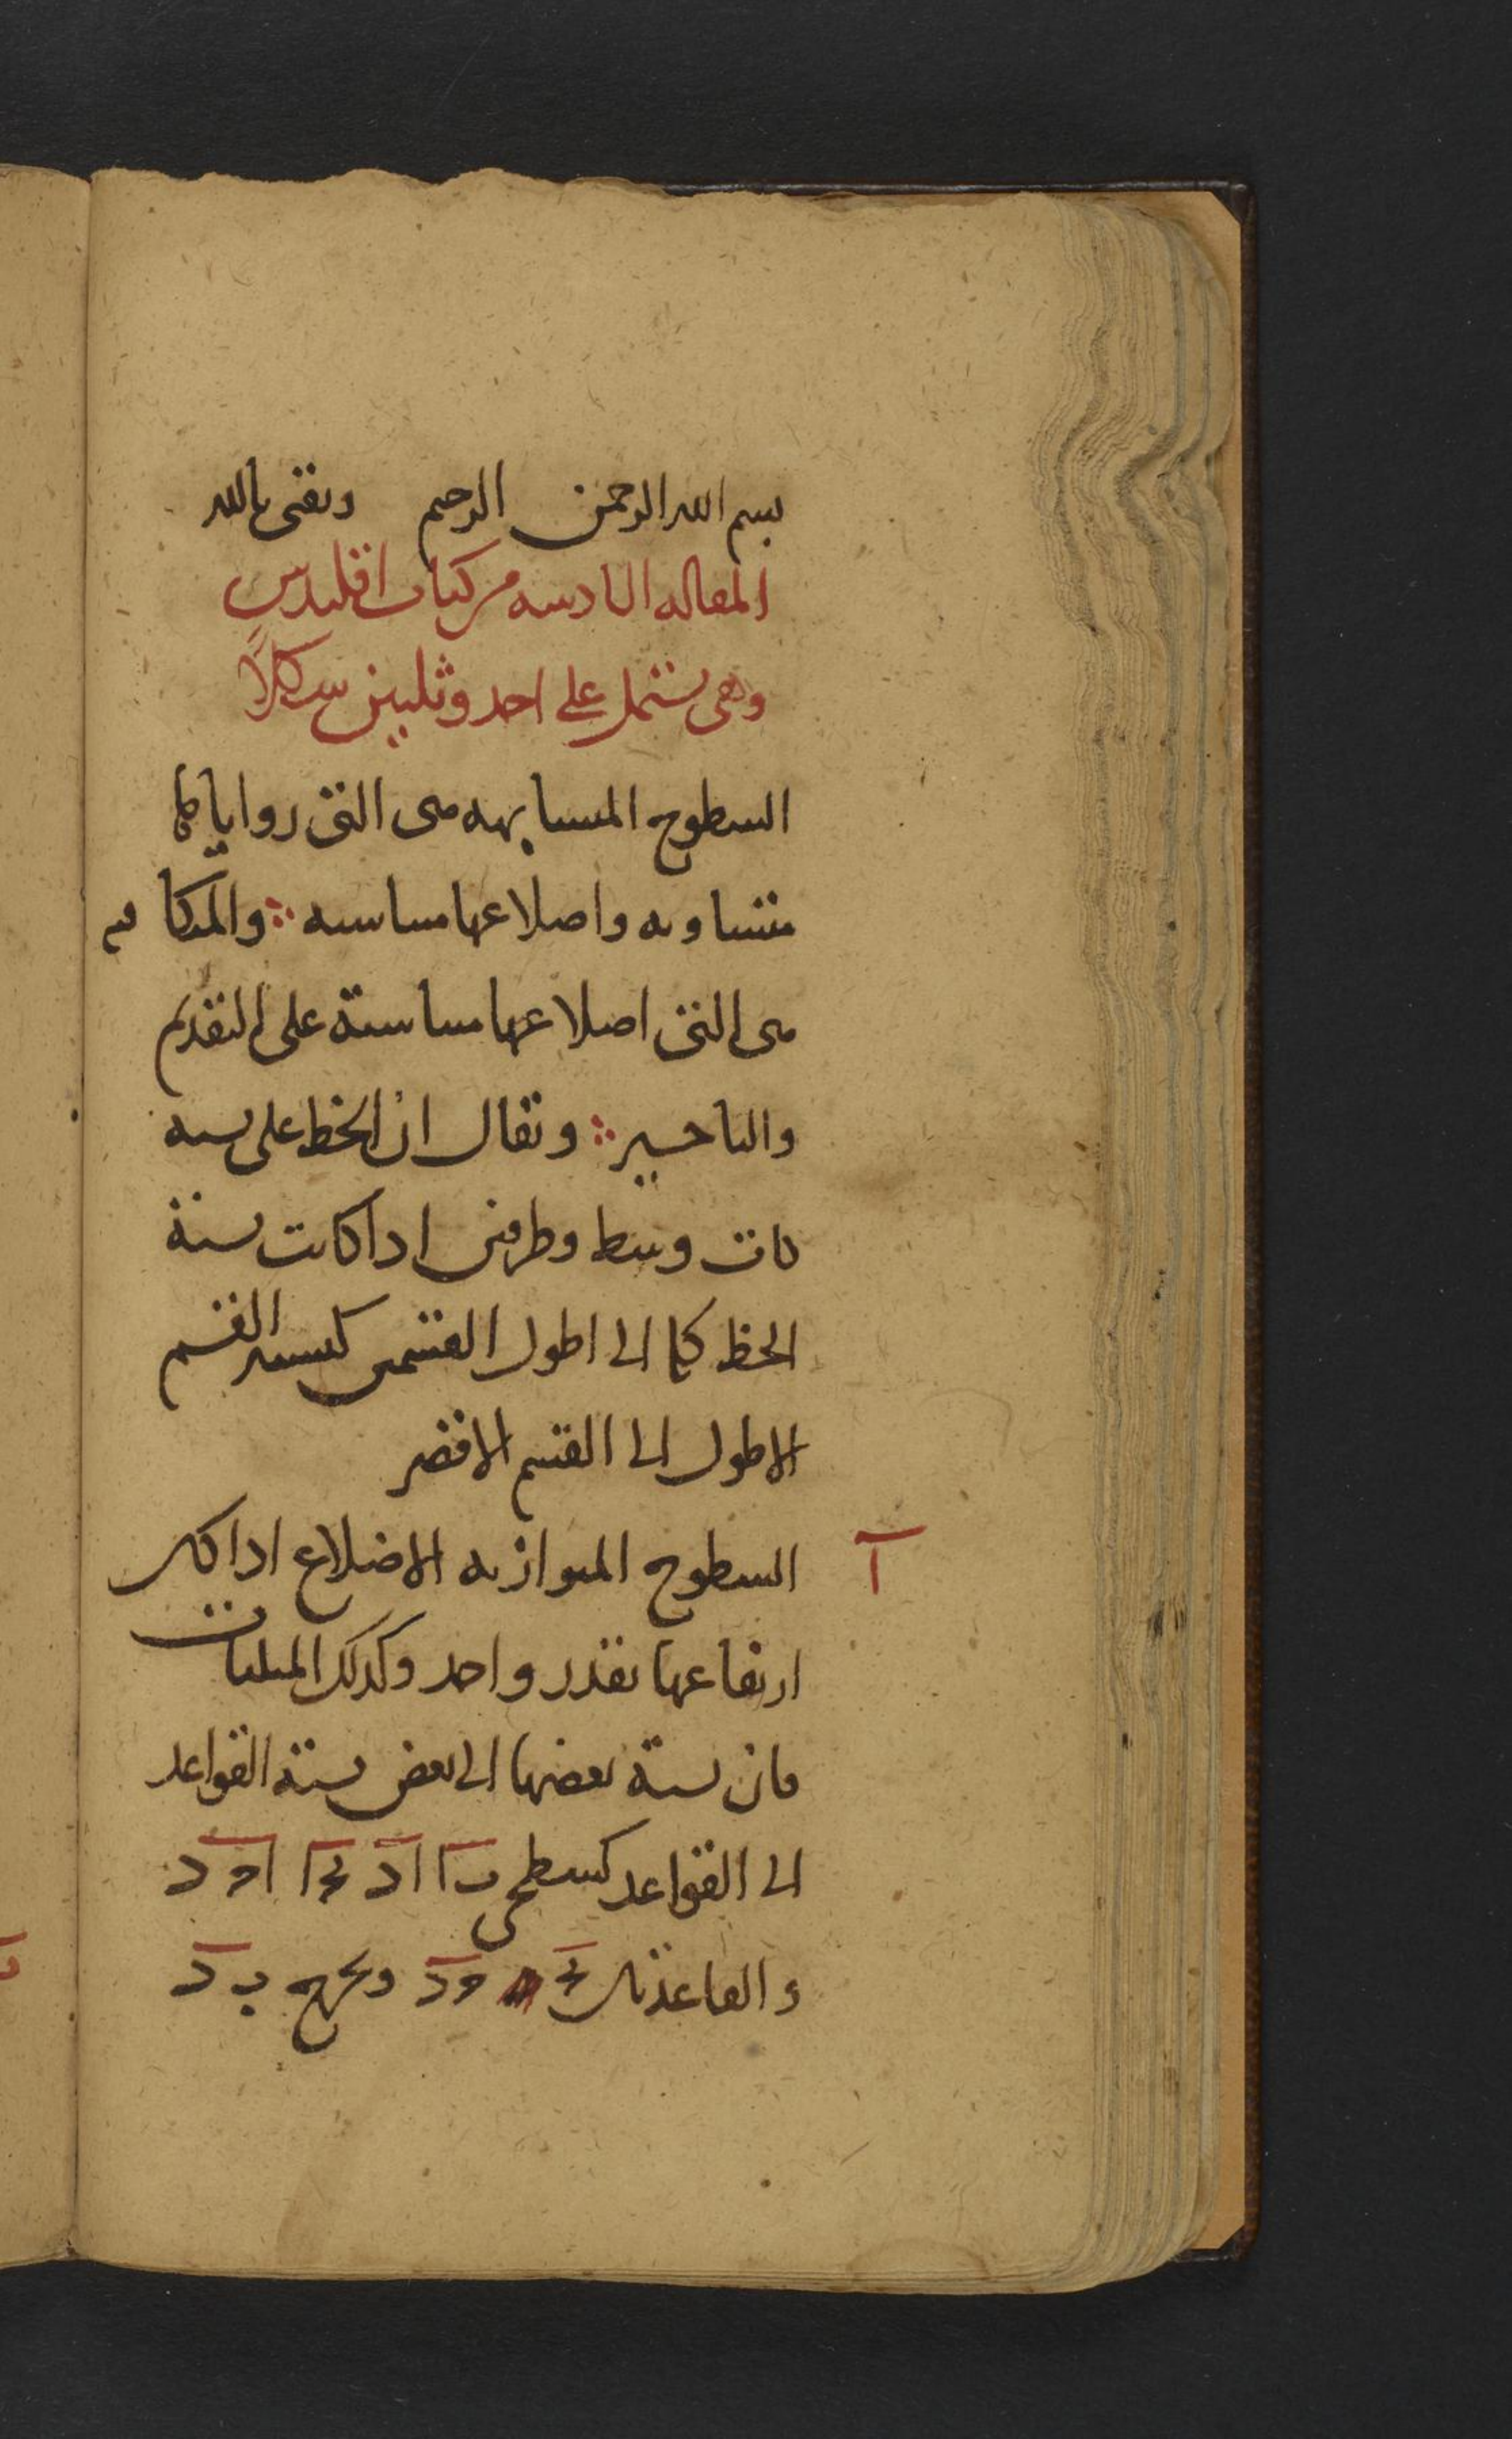 بسم الله الرحمن الرحيم وثقتى بالله
المقاله السادسه من كتاب اقليدس
وهى تشتمل على احد وثلثين شكلاً
السطوح المتشابهه هى التى زواياها
متساويه واضلاعها متناسبه ؞ والمتكافيه
هى التى اضلاعها متناسبة على التقديم
والتاخير ؞ ويقال ان الخط على نسبه
ذات وسط وطرفين اذا كانت نسبة
الخط كما الى اطول القسمين كنسبة القسم
الاطول الى القسم الاقصر
آ السطوح المتوازيه الاضلاع اذا كان
ارتفاعها بقدر واحد وكذلك المثلثات
فان نسبة بعضها الى بعض نسبة القواعد
الى القواعد كسطحى
والقاعدتان ونخرج ب د